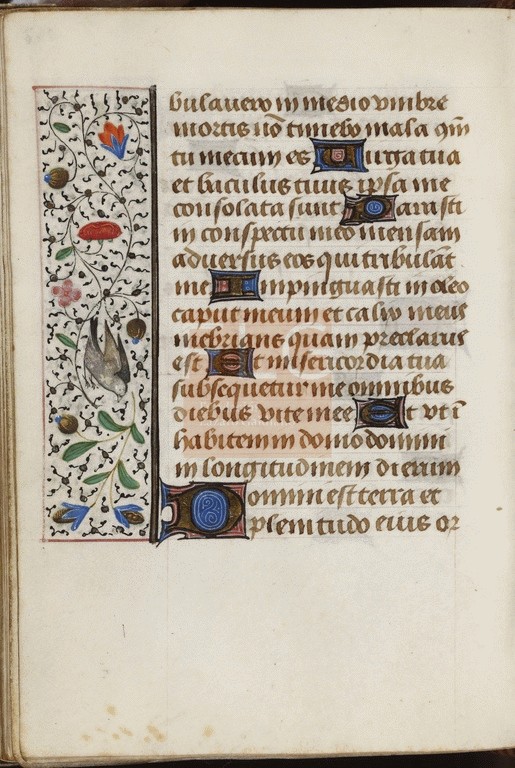 bulavero in medio umbre
mortis nō timebo mala qm̄
tu mecum es Uirga tua
et baculus tuus ipsa me
consolata sunt Parasti
in conspectu meo mensam
adversus eos qui tribulāt
me Inpinguasti in oleo
caput meum et calix meus
inebrians quam preclarus
est Et misericordia tua
subsequetur me omnibus
diebus vite mee Et vt ī
habitem in domo domini
in longitudinem dierum
Domini est terra et
plenitudo eius or